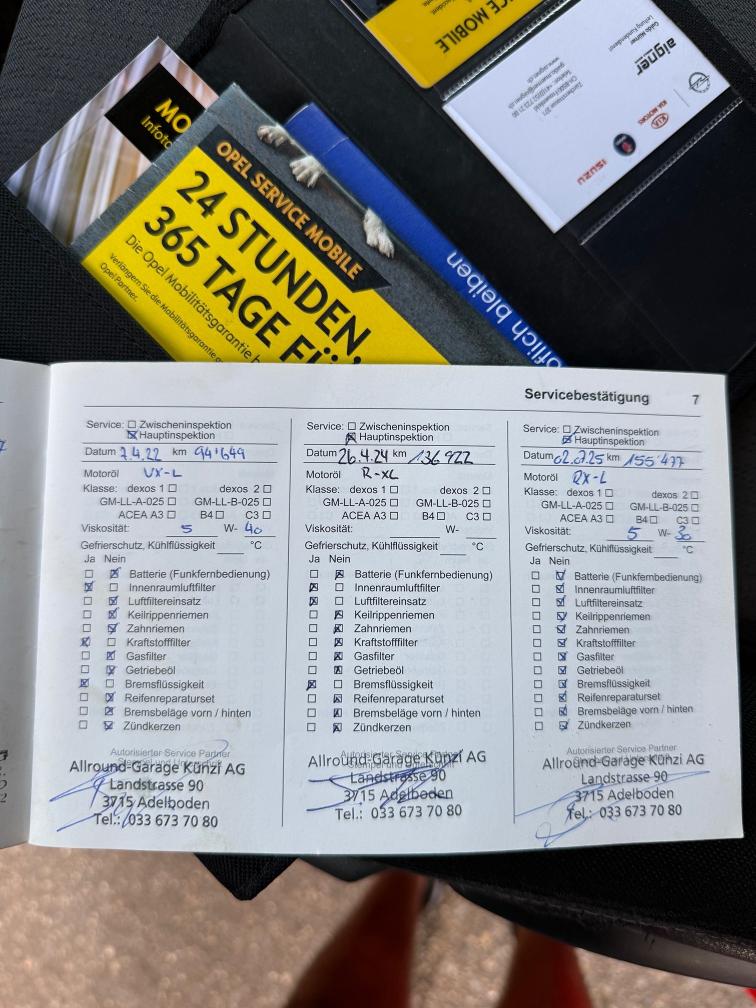 SERVICE MOBILE
Guido Mürner
Leitung Kundendienst
aigner
www.aigner.ch
KIA MOTORS
ISUZU
MO
Infota
OPEL SERVICE MOBILE
24 STUNDEN,
365 TAGE FÜ
Die Opel Mobilitätsgarantie b
Verlängern Sie die Mobilitätsgarantie
Opel Partner.
öflich bleiben
Servicebestätigung 7
Service: Zwischeninspektion
Hauptinspektion
Datum 7.4.22 km 94'649
Motoröl VX-L
Klasse: dexos 1 dexos 2
GM-LL-A-025 GM-LL-B-025
ACEA A3 B4 C3
Viskosität: 5 W- 40
Gefrierschutz, Kühlflüssigkeit °C
Ja Nein
Batterie (Funkfernbedienung)
Innenraumluftfilter
Luftfiltereinsatz
Keilrippenriemen
Zahnriemen
Kraftstofffilter
Gasfilter
Getriebeöl
Bremsflüssigkeit
Reifenreparaturset
Bremsbeläge vorn / hinten
Zündkerzen
Autorisierter Service Partner
Allround-Garage Künzi AG
Landstrasse 90
3715 Adelboden
Tel.: 033 673 70 80
Service: Zwischeninspektion
Hauptinspektion
Datum 26.4.24 km 136'922
Motoröl R-XL
Klasse: dexos 1 dexos 2
GM-LL-A-025 GM-LL-B-025
ACEA A3 B4 C3
Viskosität: W-
Gefrierschutz, Kühlflüssigkeit °C
Ja Nein
Batterie (Funkfernbedienung)
Innenraumluftfilter
Luftfiltereinsatz
Keilrippenriemen
Zahnriemen
Kraftstofffilter
Gasfilter
Getriebeöl
Bremsflüssigkeit
Reifenreparaturset
Bremsbeläge vorn / hinten
Zündkerzen
Autorisierter Service Partner
Allround-Garage Künzi AG
Landstrasse 90
3715 Adelboden
Tel.: 033 673 70 80
Service: Zwischeninspektion
Hauptinspektion
Datum 02.7.25 km 155'477
Motoröl RX-L
Klasse: dexos 1 dexos 2
GM-LL-A-025 GM-LL-B-025
ACEA A3 B4 C3
Viskosität: 5 W- 30
Gefrierschutz, Kühlflüssigkeit °C
Ja Nein
Batterie (Funkfernbedienung)
Innenraumluftfilter
Luftfiltereinsatz
Keilrippenriemen
Zahnriemen
Kraftstofffilter
Gasfilter
Getriebeöl
Bremsflüssigkeit
Reifenreparaturset
Bremsbeläge vorn / hinten
Zündkerzen
Autorisierter Service Partner
Allround-Garage Künzi AG
Landstrasse 90
3715 Adelboden
Tel.: 033 673 70 80